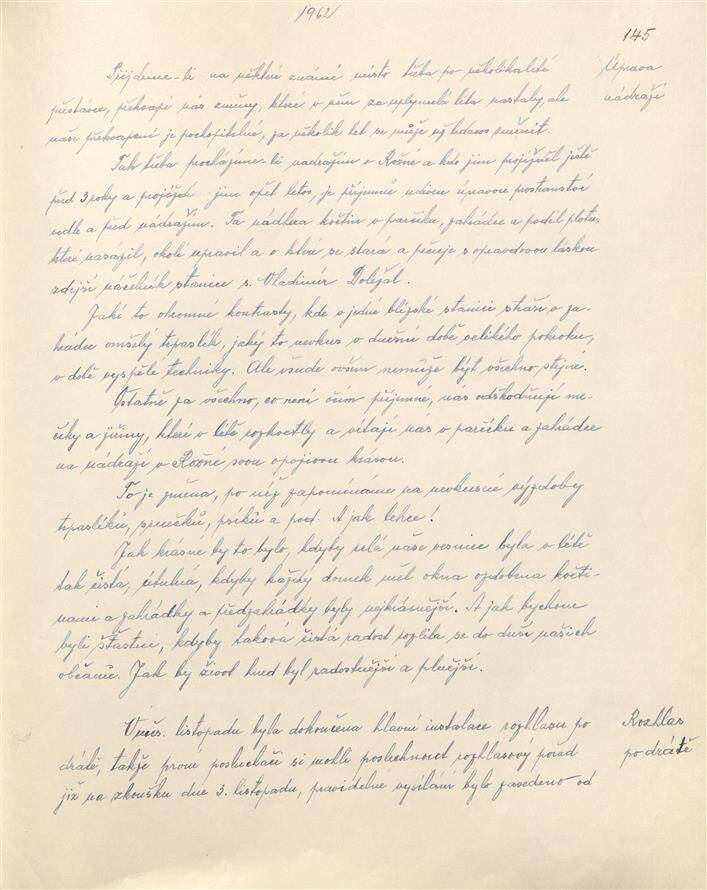 1962
145
Přijdeme-li na některé známé místo třeba po několikaleté
Úprava
přestávce, překvapí nás změny, které v něm za uplynulá léta nastaly, ale
nádraží
naše překvapení je pochopitelné, za několik let se může ledacos změnit.
Tak třeba procházíme-li nádražím v Rožné a kdo jím projížděl ještě
před 3 roky a projíždí jím opět letos, je příjemně udiven úpravou prostranství
vedle a před nádražím. Ta nádhera květin v parčíku, zahrádce a podél plotu,
které nasázil, okolí upravil a o které se stará a pečuje s opravdovou láskou
zdejší náčelník stanice s. Vladimír Doležal.
Jaké to ohromné kontrasty, kde v jedné blízké stanici straší v za-
hrádce omšelý trpaslík, jaký to nevkus v dnešní době velikého pokroku,
v době vyspělé techniky. Ale všude ovšem nemůže být všechno stejné.
Ostatně za všechno, co není očím příjemné, nás odškodňují me-
číky a jiřiny, které v létě rozkvetly a vítají nás v parčíku a zahrádce
na nádraží v Rožné svou opojivou krásou.
To je změna, po níž zapomínáme na nevkusné výzdoby
trpaslíků, srnečků, psíků a pod. A jak lehce!
Jak krásné by to bylo, kdyby celá naše vesnice byla v létě
tak čistá, útulná, kdyby každý domek měl okna ozdobena květi-
nami a zahrádky a předzahrádky byly nejkrásnější. A jak bychom
byli šťastni, kdyby taková čistá radost vzlila se do duší našich
občanů. Jak by život hned byl radostnější a plnější.
Rozhlas
listopadu byla dokončena hlavní instalace rozhlasu po
po drátě
drátě, takže první posluchači si mohli poslechnout rozhlasový pořad
již na zkoušku dne 3. listopadu, pravidelné vysílání bylo zavedeno od